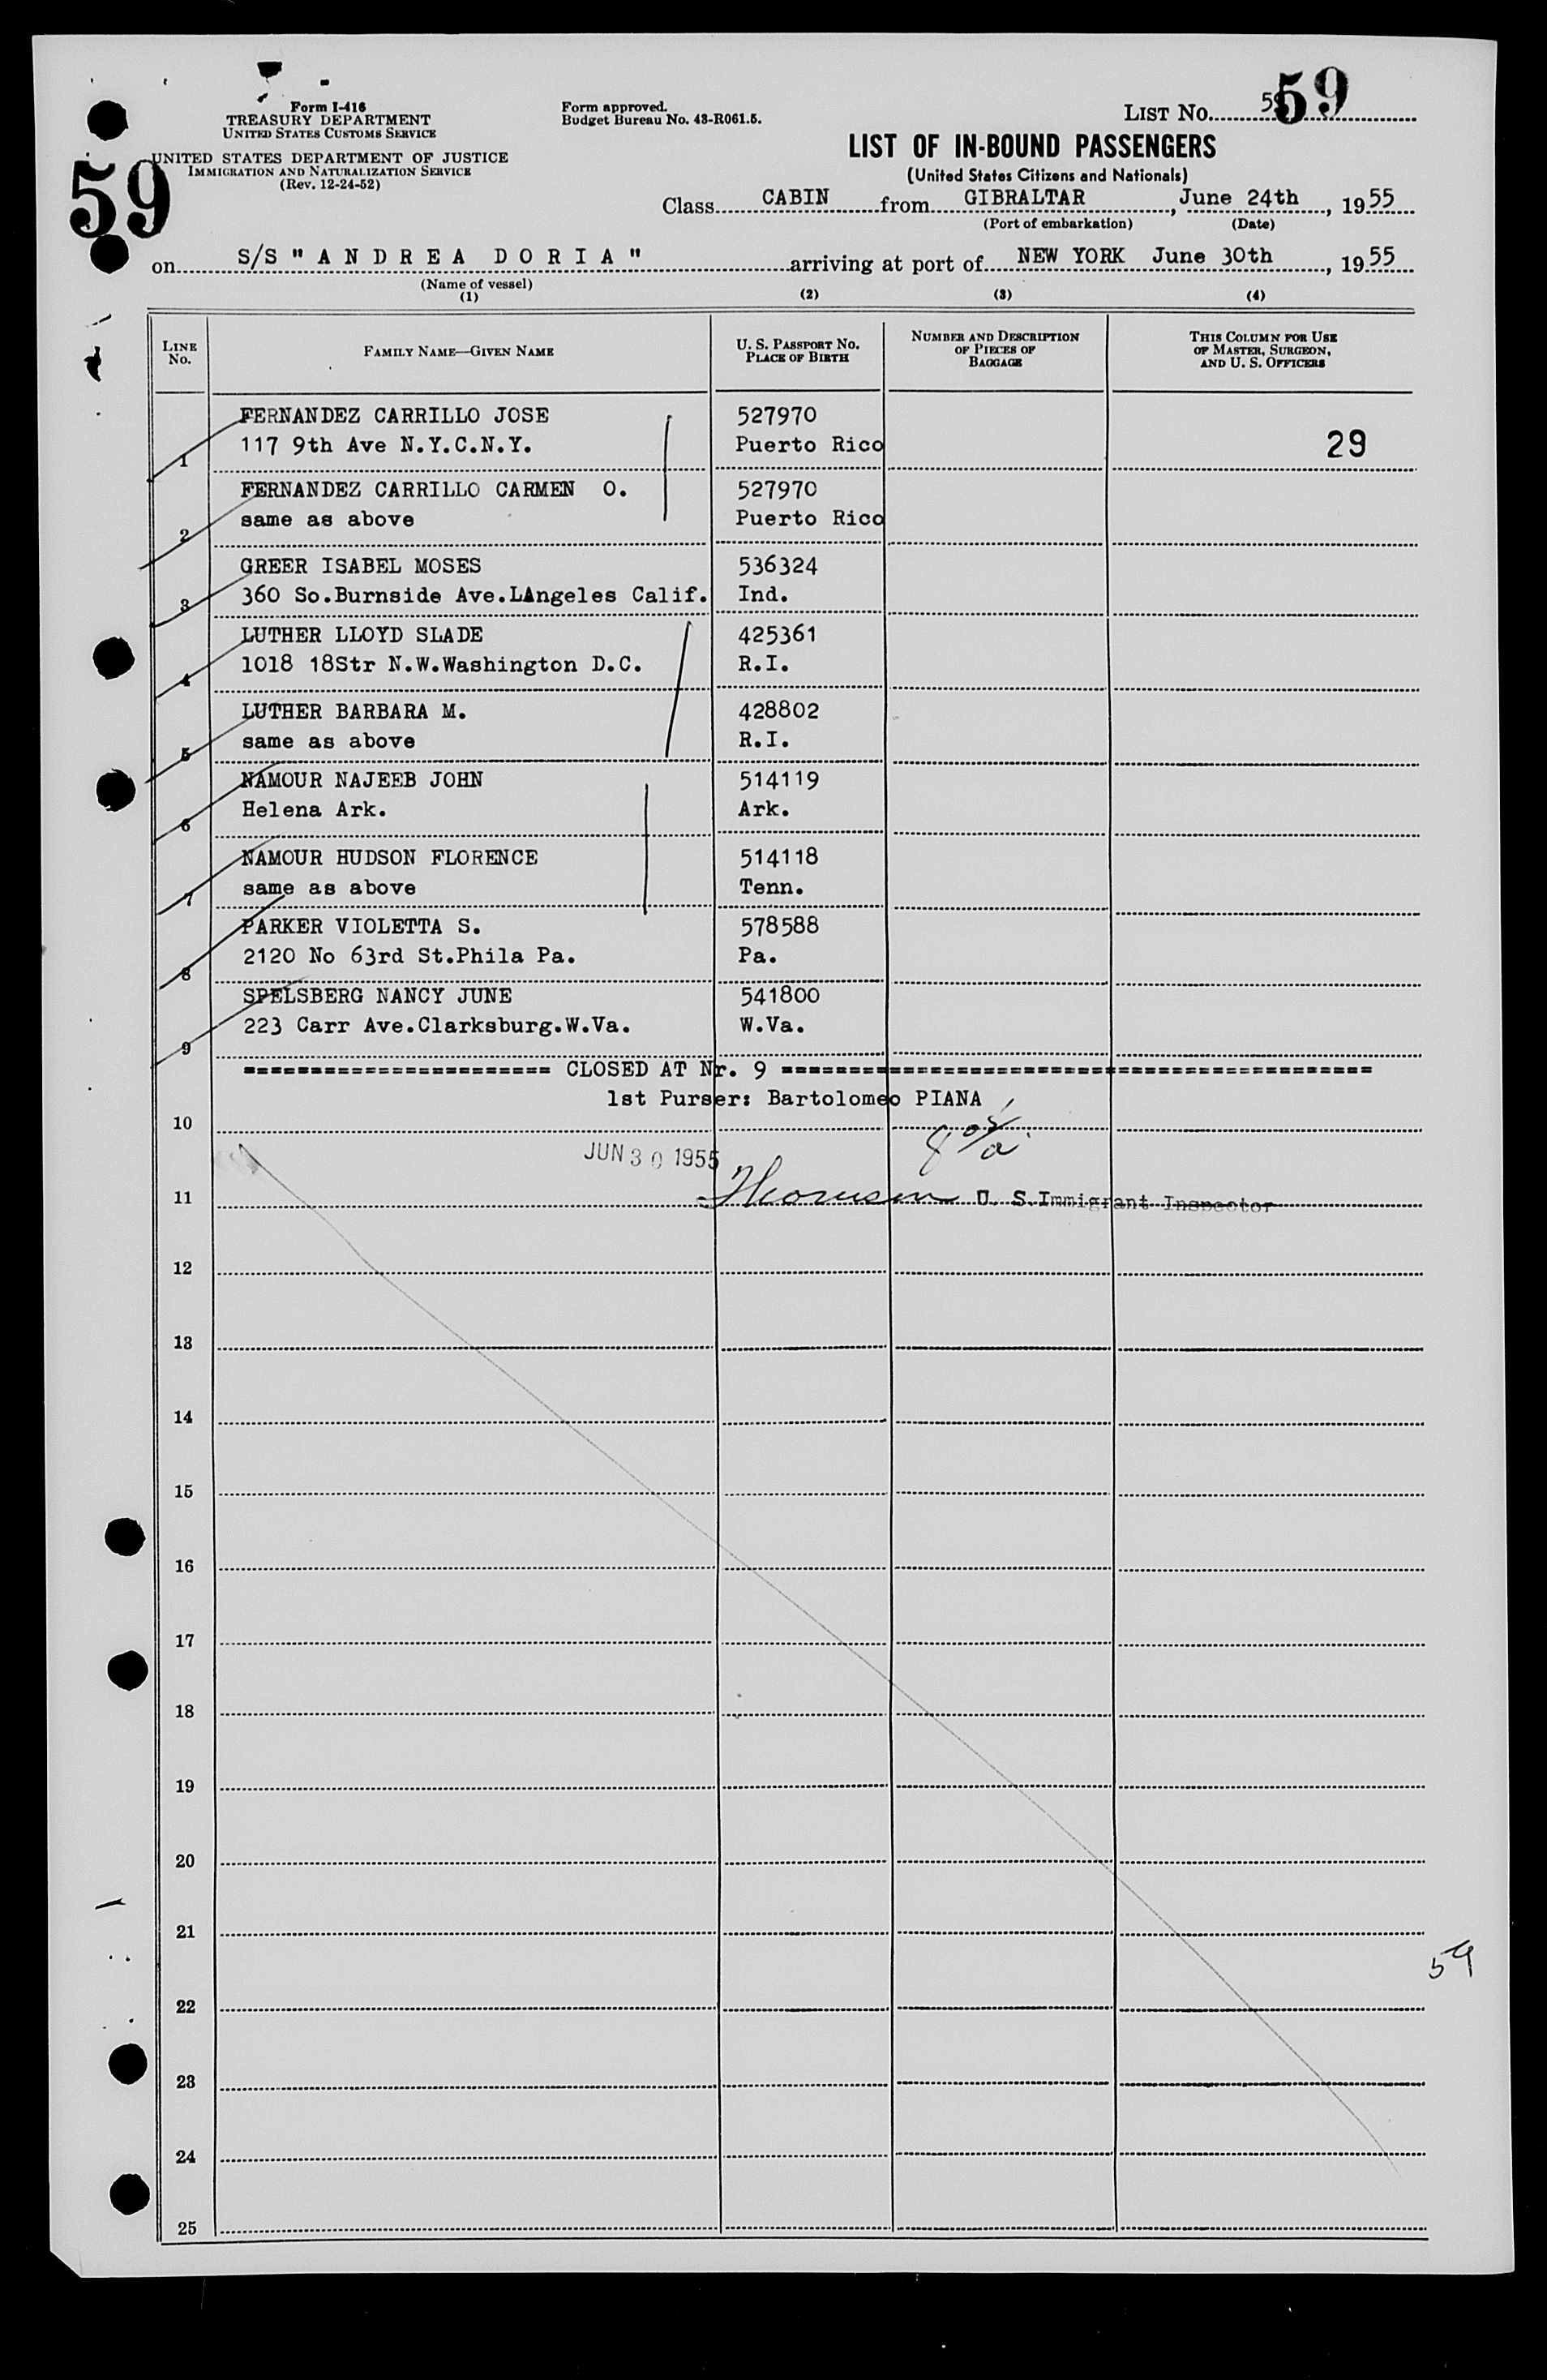 59
Form I-416
TREASURY DEPARTMENT
UNITED STATES CUSTOMS SERVICE
UNITED STATES DEPARTMENT OF JUSTICE
IMMIGRATION AND NATURALIZATION SERVICE
(Rev. 12-24-52)
Form approved.
Budget Bureau No. 43-R061.5.
LIST No. 59
LIST OF IN-BOUND PASSENGERS
(United States Citizens and Nationals)
Class CABIN from GIBRALTAR, June 24th, 1955
(Port of embarkation) (Date)
on S/S " A N D R E A D O R I A " arriving at port of NEW YORK June 30th, 1955
(Name of vessel)
(1) (2) (3) (4)
LINE No. FAMILY NAME—GIVEN NAME U. S. PASSPORT NO. PLACE OF BIRTH NUMBER AND DESCRIPTION OF PIECES OF BAGGAGE THIS COLUMN FOR USE OF MASTER, SURGEON, AND U. S. OFFICERS
FERNANDEZ CARRILLO JOSE 527970
1 117 9th Ave N.Y.C.N.Y. Puerto Rico 29
FERNANDEZ CARRILLO CARMEN O. 527970
2 same as above Puerto Rico
GREER ISABEL MOSES 536324
3 360 So.Burnside Ave.LAngeles Calif. Ind.
LUTHER LLOYD SLADE 425361
4 1018 18Str N.W.Washington D.C. R.I.
LUTHER BARBARA M. 428802
5 same as above R.I.
NAMOUR NAJEEB JOHN 514119
6 Helena Ark. Ark.
NAMOUR HUDSON FLORENCE 514118
7 same as above Tenn.
PARKER VIOLETTA S. 578588
8 2120 No 63rd St.Phila Pa. Pa.
SPELSBERG NANCY JUNE 541800
9 223 Carr Ave.Clarksburg.W.Va. W.Va.
======================= CLOSED AT Nr. 9 ============================================
1st Purser: Bartolomeo PIANA
10
JUN 30 1955
11 U. S. Immigrant Inspector
12
13
14
15
16
17
18
19
20
21
59
22
23
24
25